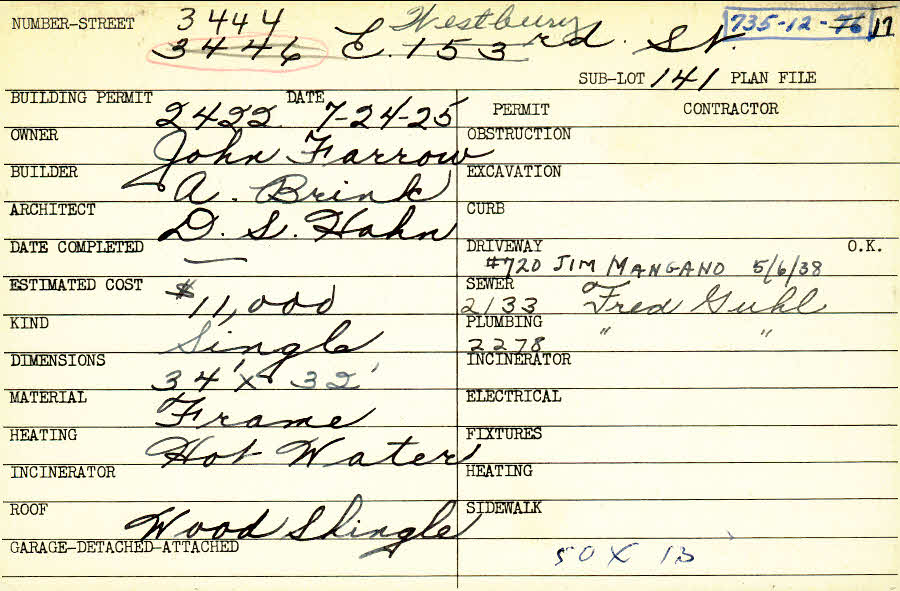 NUMBER-STREET 3444 Westbury 735-12-76 17
3446 E. 153rd. St.
SUB-LOT 141 PLAN FILE
BUILDING PERMIT 2422 DATE 7-24-25
OWNER John Farrow
BUILDER A. Brink
ARCHITECT D. S. Hahn
DATE COMPLETED —
ESTIMATED COST $11,000
KIND Single
DIMENSIONS 34' x 32'
MATERIAL Frame
HEATING Hot Water
INCINERATOR
ROOF Wood Shingle
GARAGE-DETACHED-ATTACHED
PERMIT CONTRACTOR
OBSTRUCTION
EXCAVATION
CURB
DRIVEWAY O.K.
#720 JIM MANGANO 5/6/38
SEWER
2133 Fred Guhl
PLUMBING
2278 " "
INCINERATOR
ELECTRICAL
FIXTURES
HEATING
SIDEWALK
50 X 13